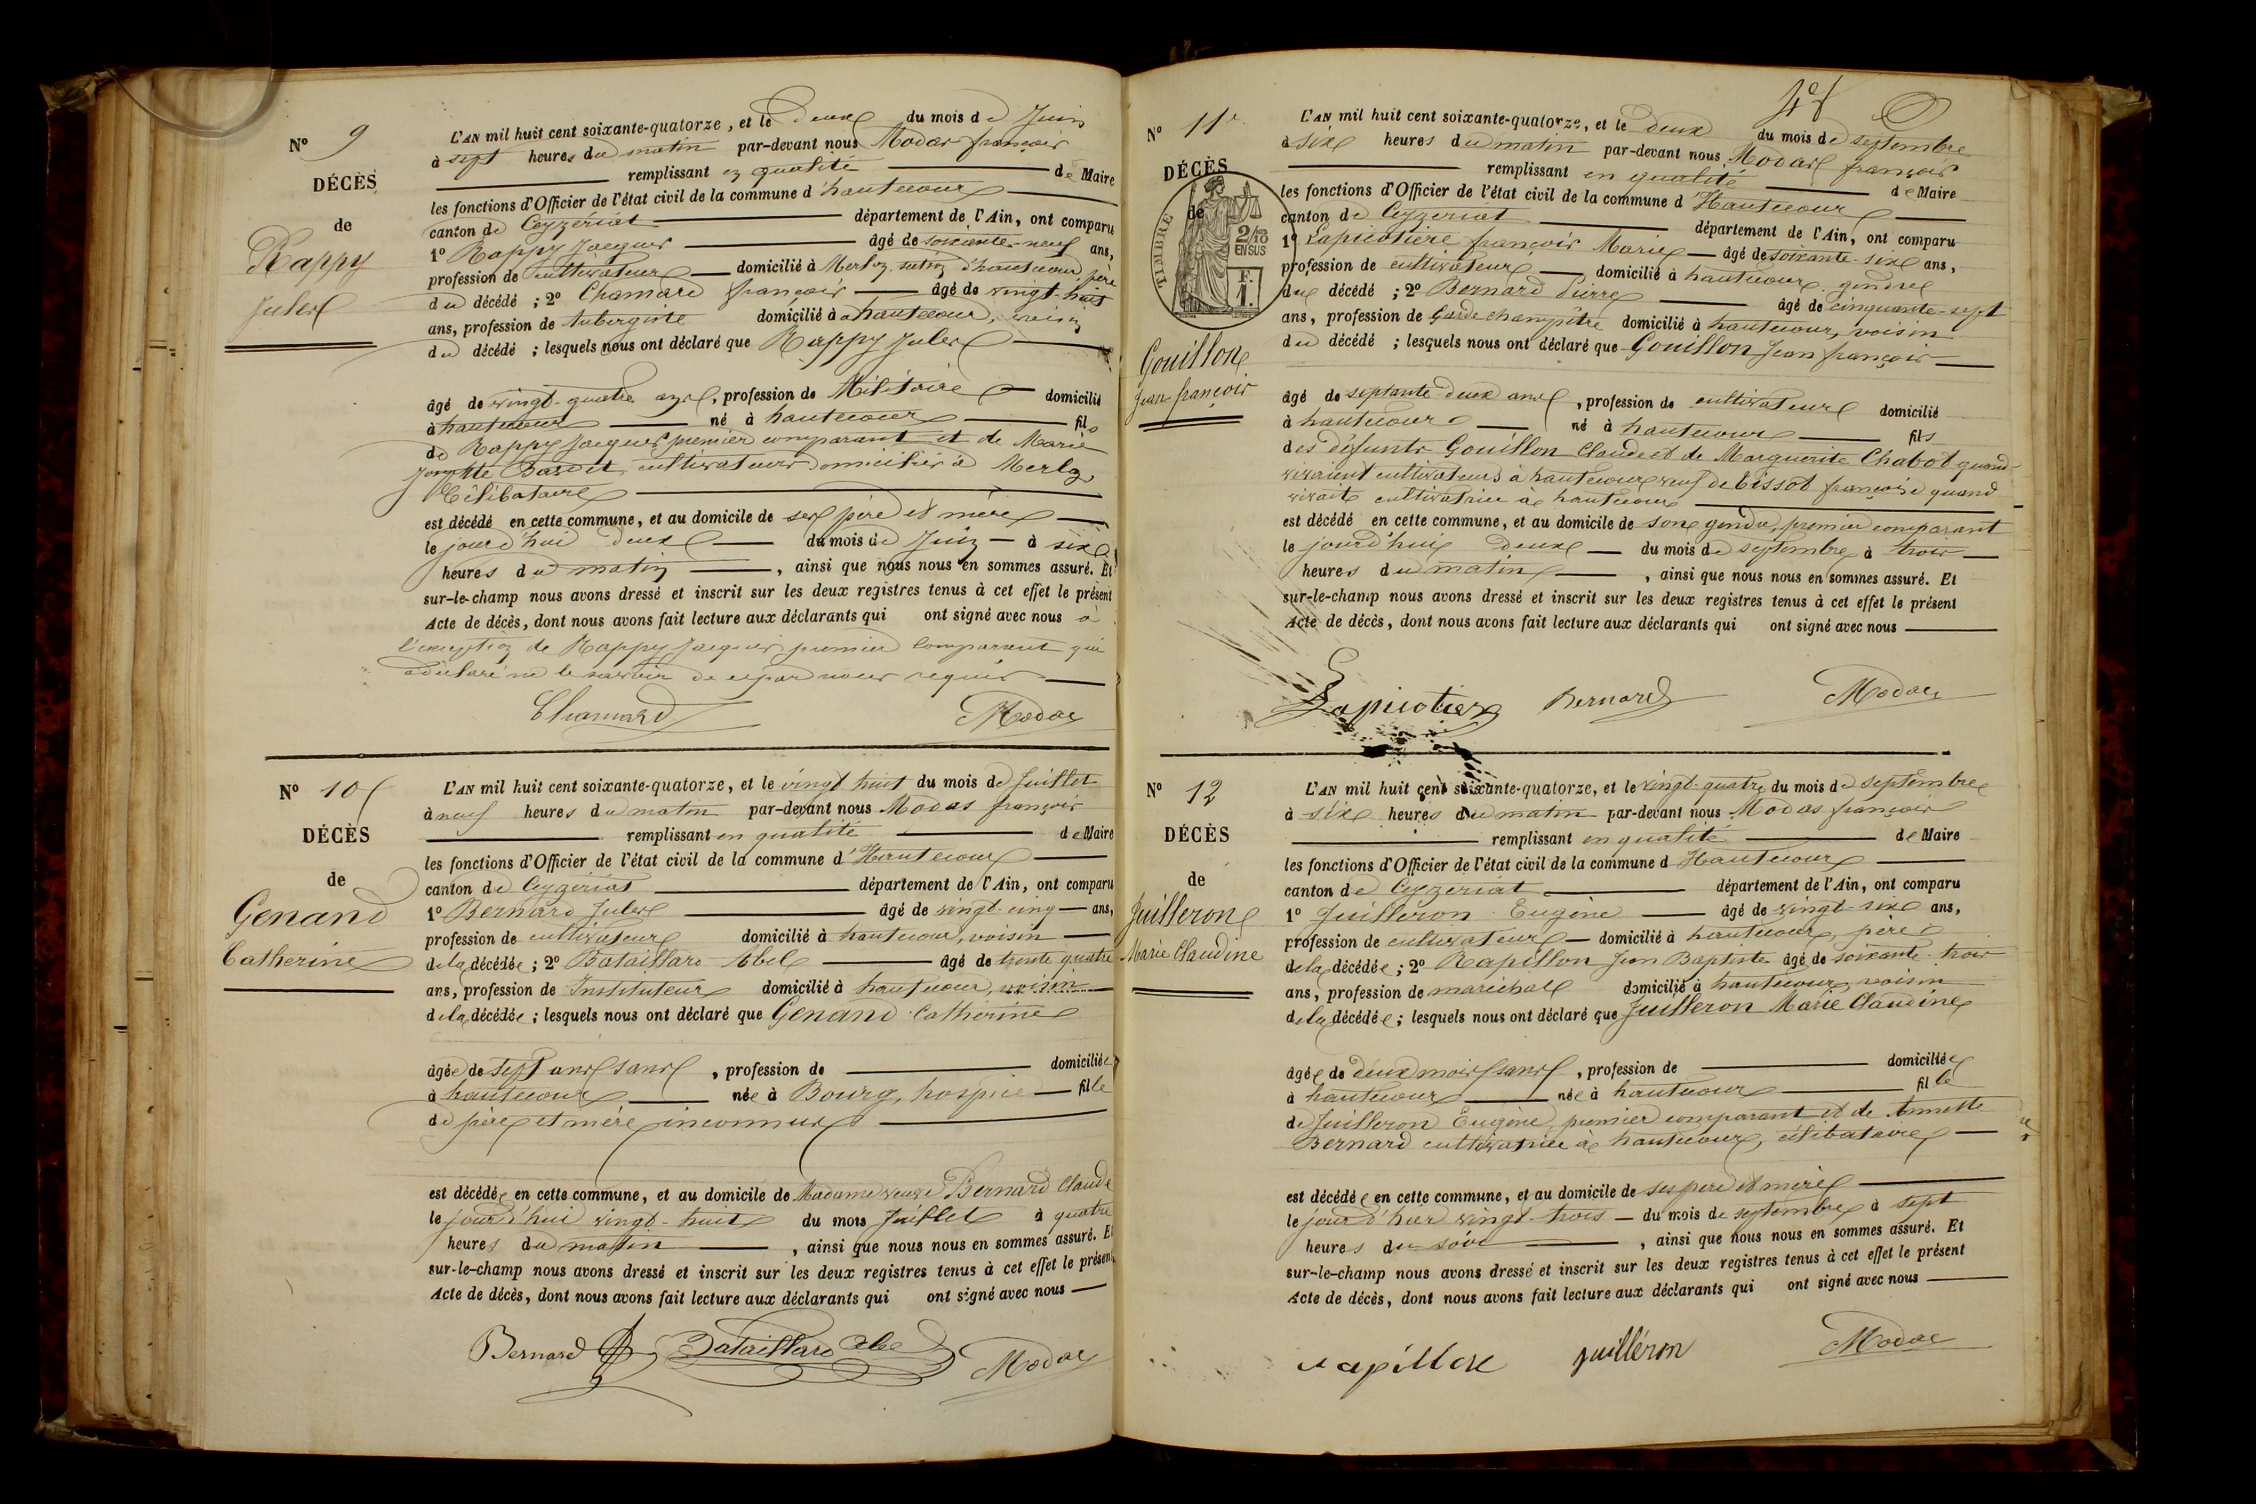 N° 9
DÉCÈS
de
Rappy
Jules
L'AN mil huit cent soixante-quatorze, et le deux du mois de Juin
à sept heures du matin par-devant nous Modas françois
remplissant en qualité de Maire
les fonctions d'Officier de l'état civil de la commune d'hautecour
canton de Ceyzériat département de l'Ain, ont comparu
1° Rappy Jacques âgé de soixante-neuf ans,
profession de cultivateur domicilié à Merloz d'hautecour père
du décédé ; 2° Chamard françois âgé de vingt-huit
ans, profession de Aubergiste domicilié à hautecour, voisin
du décédé ; lesquels nous ont déclaré que Rappy Jules
âgé de vingt-quatre ans, profession de Militaire domicilié
à hautecour né à hautecour fils
de Rappy Jacques premier comparant et de Marie
Josephte cultivateurs domiciliés à Merloz
Célibataire
est décédé en cette commune, et au domicile de ses père et mère
le jourd'hui deux du mois de Juin à six
heures du matin, ainsi que nous nous en sommes assuré. Et
sur-le-champ nous avons dressé et inscrit sur les deux registres tenus à cet effet le présent
Acte de décès, dont nous avons fait lecture aux déclarants qui ont signé avec nous à
l'exception de Rappy Jacques premier comparant qui
a déclaré ne le savoir de ce par nous requis
Chamard Modas
N° 10
DÉCÈS
de
Genand
Catherine
L'AN mil huit cent soixante-quatorze, et le vingt huit du mois de Juillet
à neuf heures du matin par-devant nous Modas françois
remplissant en qualité de Maire
les fonctions d'Officier de l'état civil de la commune d'Hautecour
canton de Ceyzériat département de l'Ain, ont comparu
1° Bernard Jules âgé de vingt-cinq ans,
profession de cultivateur domicilié à hautecour, voisin
de la décédée ; 2° Bataillard Abel âgé de trente quatre
ans, profession de Instituteur domicilié à hautecour, voisin
de la décédée ; lesquels nous ont déclaré que Genand Catherine
âgée de sept ans sans, profession de domiciliée
à hautecour née à Bourg, hospice fille
de père et mère inconnus
est décédée en cette commune, et au domicile de Madame veuve Bernard Claude
le jourd'hui vingt-huit du mois Juillet à quatre
heures du matin, ainsi que nous nous en sommes assuré. Et
sur-le-champ nous avons dressé et inscrit sur les deux registres tenus à cet effet le présent
Acte de décès, dont nous avons fait lecture aux déclarants qui ont signé avec nous
Bernard Bataillard Abel Modas
N° 11
DÉCÈS
de
TIMBRE
2/10
EN SUS
F.
1.
Gouillon
Jean françois
L'AN mil huit cent soixante-quatorze, et le deux du mois de septembre
à six heures du matin par-devant nous Modas françois
remplissant en qualité de Maire
les fonctions d'Officier de l'état civil de la commune d Hautecour
canton de Ceyzeriat département de l'Ain, ont comparu
1° Lapicotière françois Marie âgé de soixante-six ans,
profession de cultivateur domicilié à hautecour, gendre
du décédé ; 2° Bernard Pierre âgé de cinquante-sept
ans, profession de Garde champêtre domicilié à hautecour, voisin
du décédé ; lesquels nous ont déclaré que Gouillon Jean françois
âgé de septante deux ans, profession de cultivateur domicilié
à hautecour né à hautecour fils
des défunts Gouillon Claude et de Marguerite Chabot quand
vivaient cultivateurs à hautecour veuf de Cissot françoise quand
vivait cultivatrice à hautecour
est décédé en cette commune, et au domicile de son gendre, premier comparant
le jourd'hui deux du mois de septembre à trois
heures du matin, ainsi que nous nous en sommes assuré. Et
sur-le-champ nous avons dressé et inscrit sur les deux registres tenus à cet effet le présent
Acte de décès, dont nous avons fait lecture aux déclarants qui ont signé avec nous
Lapicotiere Bernard Modas
N° 12
DÉCÈS
de
Juilleron
Marie Claudine
L'AN mil huit cent soixante-quatorze, et le vingt-quatre du mois de septembre
à six heures du matin par-devant nous Modas françois
remplissant en qualité de Maire
les fonctions d'Officier de l'état civil de la commune d Hautecour
canton de Ceyzeriat département de l'Ain, ont comparu
1° Juilleron Eugène âgé de vingt-six ans,
profession de cultivateur domicilié à hautecour, père
de la décédée ; 2° Rapillon Jean Baptiste âgé de soixante-trois
ans, profession de maréchal domicilié à hautecour, voisin
de la décédée ; lesquels nous ont déclaré que Juilleron Marie Claudine
âgée de deux mois sans, profession de domiciliée
à hautecour née à hautecour fille
de Juilleron Eugène, premier comparant et de Annette
Bernard cultivatrice à hautecour, célibataire
est décédée en cette commune, et au domicile de ses père et mère
le jour d'hier vingt-trois du mois de septembre à sept
heures du soir, ainsi que nous nous en sommes assuré. Et
sur-le-champ nous avons dressé et inscrit sur les deux registres tenus à cet effet le présent
Acte de décès, dont nous avons fait lecture aux déclarants qui ont signé avec nous
rapillon juilléron Modas